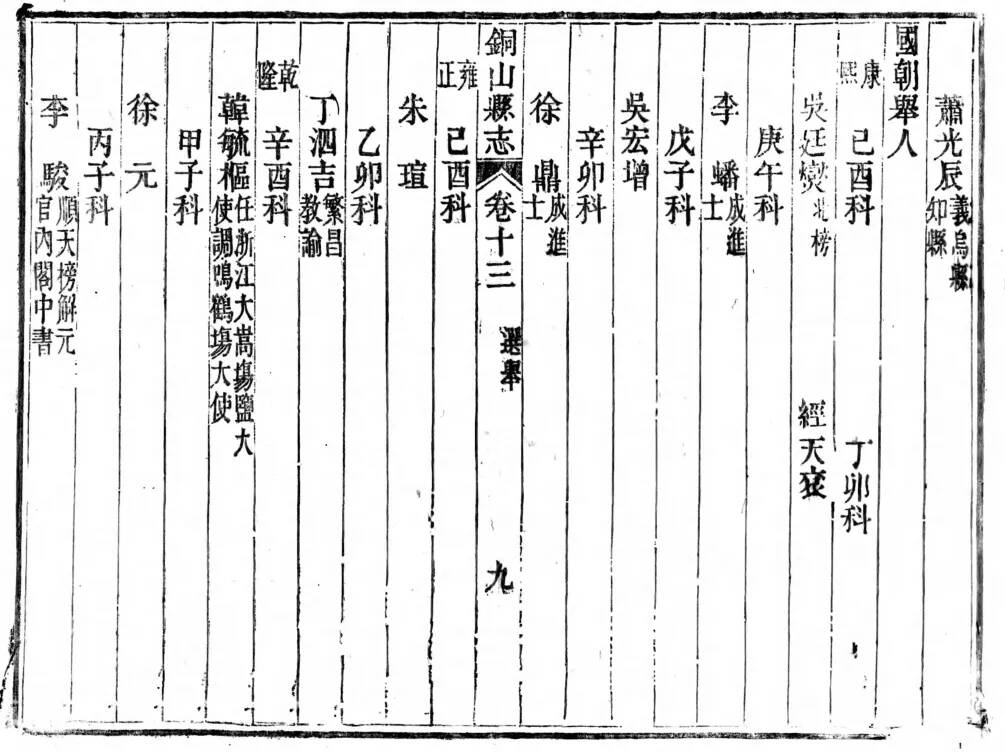 蕭光辰義烏縣知縣
國朝舉人
康熙己酉科　丁卯科
吳廷燮北榜　經天
庚午科
李蟠成進士
戊子科
吳宏增
辛卯科
徐鼎成進士
銅山縣志　卷十三　選舉　九
雍正己酉科
朱瑄
乙卯科
丁泗吉繁昌教諭
乾隆辛酉科
韓毓樞任浙江大嵩場鹽大使調鳴鶴場大使
甲子科
徐元
丙子科
李駿順天榜解元官內閣中書